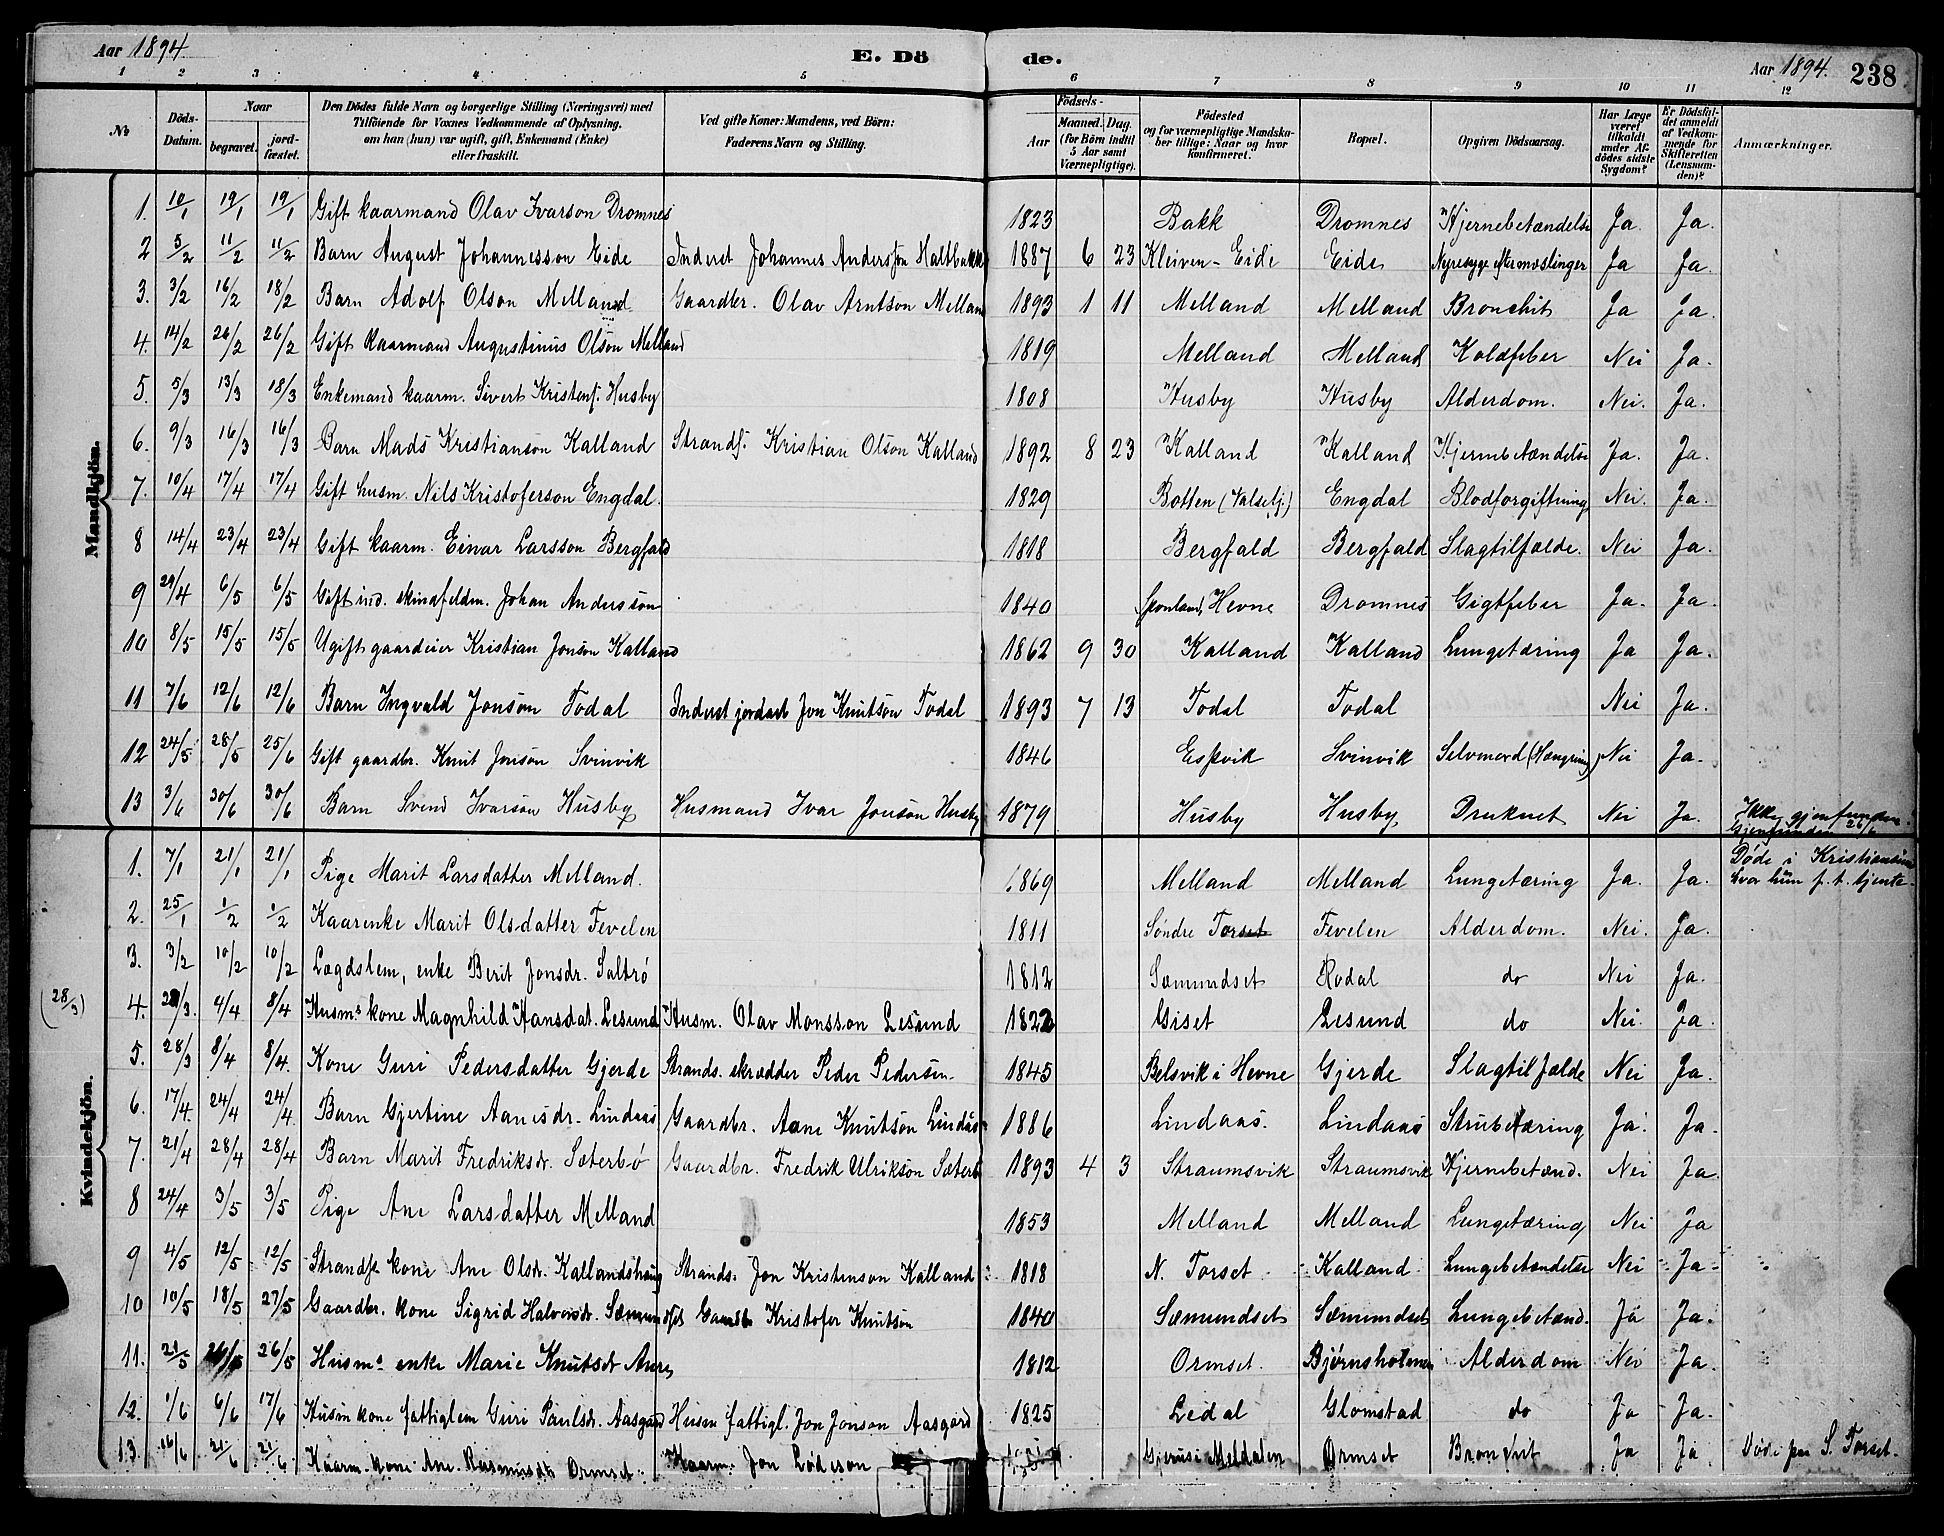 Aar 1894. E. Dö de. Aar 1894. 238
1 2 3 4 5 6 7 8 9 10 11 12
No Döds-Datum. Naar begravet. jord-fæstet. Den Dödes fulde Navn og borgerlige Stilling (Næringsvei) med Tilföiende for Voxnes Vedkommende af Oplysning, om han (hun) var ugift, gift, Enkemand (Enke) eller fraskilt. Ved gifte Koner: Mandens, ved Börn: Faderens Navn og Stilling. Födsels- Aar Maaned. Dag. (for Börn indtil 5 Aar samt Værnepligtige). Födested og for værnepligtige Mandskaber tillige: Naar og hvor konfirmeret. Bopæl. Opgiven Dödsaarsag. Har Læge været tilkaldt under Afdödes sidste Sygdom? Er Dödsfaldet anmeldt af Vedkommende for Skifteretten (Lensmanden)? Anmærkninger.
Mandkjön.
1. 10/1 19/1 19/1 Gift kaarmand Olav Ivarson Dromnes 1823 Bakk Dromnes Hjernebetændelse Ja. Ja.
2 5/2 11/2 11/2 Barn August Johannesson Eide Inderst Johannes Andersson Haltbakk 1887 6 23 Kleiven-Eide Eide Nyresyge efter mæslinger Ja Ja.
3. 3/2 16/2 18/2 Barn Adolf Olson Melland Gaardbr. Olav Arntson Melland 1893 1 11 Melland Melland Bronchit Ja Ja.
4. 14/2 26/2 26/2 Gift Kaarmand Augustinus Olson Melland 1819 Melland Melland Koldfeber Nei Ja.
5. 5/3 13/3 18/3 Enkemand kaarm. Sivert Kristens. Husby 1808 Husby Husby Alderdom. Nei. Ja.
6. 9/3 16/3 16/3 Barn Mads Kristianson Kalland Strands. Kristian Olson Kalland 1892 8 23 Kalland Kalland Hjernebetændelse Ja. Ja.
7. 10/4 17/4 17/4 Gift husm. Nils Kristoferson Engdal. 1829 Botten (Valsøfj.) Engdal Blodforgiftning Nei. Ja.
8 14/4 23/4 23/4 Gift kaarm. Einar Larsson Bergfald 1818 Bergfald Bergfald Slagtilfælde. Nei Ja.
9 29/4 6/5 6/5 Gift ind. skindfeldm. Johan Andersson 1840 Hevne Dromnes Gigtfeber Ja. Ja.
10 8/5 15/5 15/5 Ugift gaardeier Kristian Jonson Kalland 1862 9 30 Kalland Kalland Lungetæring Ja Ja.
11 7/6 12/6 12/6 Barn Ingvald Jonson Todal Inderst jordarb. Jon Knutson Todal 1893 7 13 Todal Todal Nei Ja.
12 24/5. 28/5 25/6 Gift gaardbr. Knut Jonson Svinvik 1846 Espvik Svinvik Selvmord (Hængning) Nei Ja.
13 3/6 30/6 30/6 Barn Svend Ivarson Husby Husmand Ivar Jonson Husby 1879 Husby Husby Druknet Nei Ja. Ikke gjenfunden. Gjenfunden 26/6
Kvindekjön.
1. 7/1 21/1 21/1 Pige Marit Larsdatter Melland. 1869 Melland Melland Lungetæring Ja. Ja. Døde i Kristiansund hvor hun p.t. tjente.
2. 25/1 1/2 1/2 Kaarenke Marit Olsdatter Fevelen 1811 Søndre Torset Fevelen Alderdom. Nei. Ja.
3. 3/2 10/2 10/2 Lægdslem, enke Berit Jonsdr. Saltrø 1812 Sæmundset Rodal do Nei Ja.
(28/3) 4. 28/3. 4/4 8/4 Husms kone Magnhild Hansdat. Lesund Husm. Olav Monsson Lesund 1822 Giset Lesund do Nei. Ja.
5. 28/3 8/4 8/4. Kone Guri Pedersdatter Gjerde Strands. skrædder Peder Pedersen. 1845 Belsvik i Hevne Gjerde Slagtilfælde Nei Ja.
6. 17/4. 24/4 24/4. Barn Gjertine Aanesdr. Lindaas Gaardbr. Aane Knutson Lindås 1886 Lindaas. Lindaas Strubetæring Ja. Ja.
7. 21/4 28/4 28/4 Barn Marit Fredriksdr. Sæterbø Gaardbr. Fredrik Ulrikson Sæterb 1893 4 3 Straumsvik Straumsvik Hjernebetænd. Nei Ja.
8 24/4 3/5 3/5 Pige Ane Larsdatter Melland 1853 Melland Melland Lungetæring Nei Ja
9 4/5 12/5 12/5 Strands. kone Ane Olsdr. Kallandshaug Strands. Jon Kristenson Kalland 1818 N. Torset Kalland Lungebetændelse Nei Ja
10 10/5 18/5 27/5 Gaardbr. kone Sigrid Halvorsdr. Sæmundset Gaardbr Kristofer Knutson 1840 Sæmundset Sæmundset Lungebetænd. Ja Ja.
11. 21/5 26/5 26/5 Husms enke Marie Knutsdr Aures 1812 Ormset. Bjørnsholmen Alderdom Nei Ja.
12. 1/6 6/6 17/6 Husm kone fattiglem Guri Paulsdr. Aasgård Husm fattigl. Jon Jonson Aasgård 1825 Ledal Glomstad do Ja Ja.
13. 16/6 21/6 21/6 Kaarm. kone Ane Rasmusdr Ormset. Kaarm. Jon Lødeson Gjerus i Meldalen Ormset Bronchit Ja Ja Døde paa S. Torset.